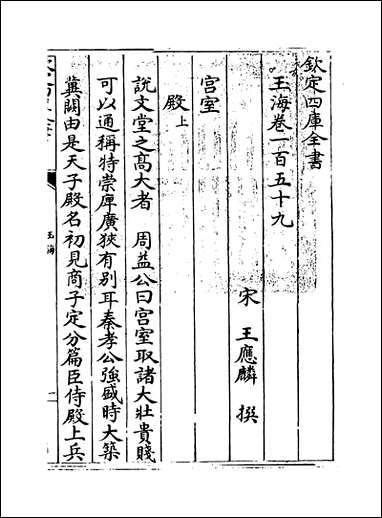 欽定四庫全書
玉海卷一百五十九
宋 王應麟 撰
宮室
殿上
説文堂之髙大者 周益公曰宮室取諸大壯貴賤
可以通稱特崇庳廣狹有别耳秦孝公強盛時大築
冀闕由是天子殿名初見商子定分篇臣侍殿上兵
玉海